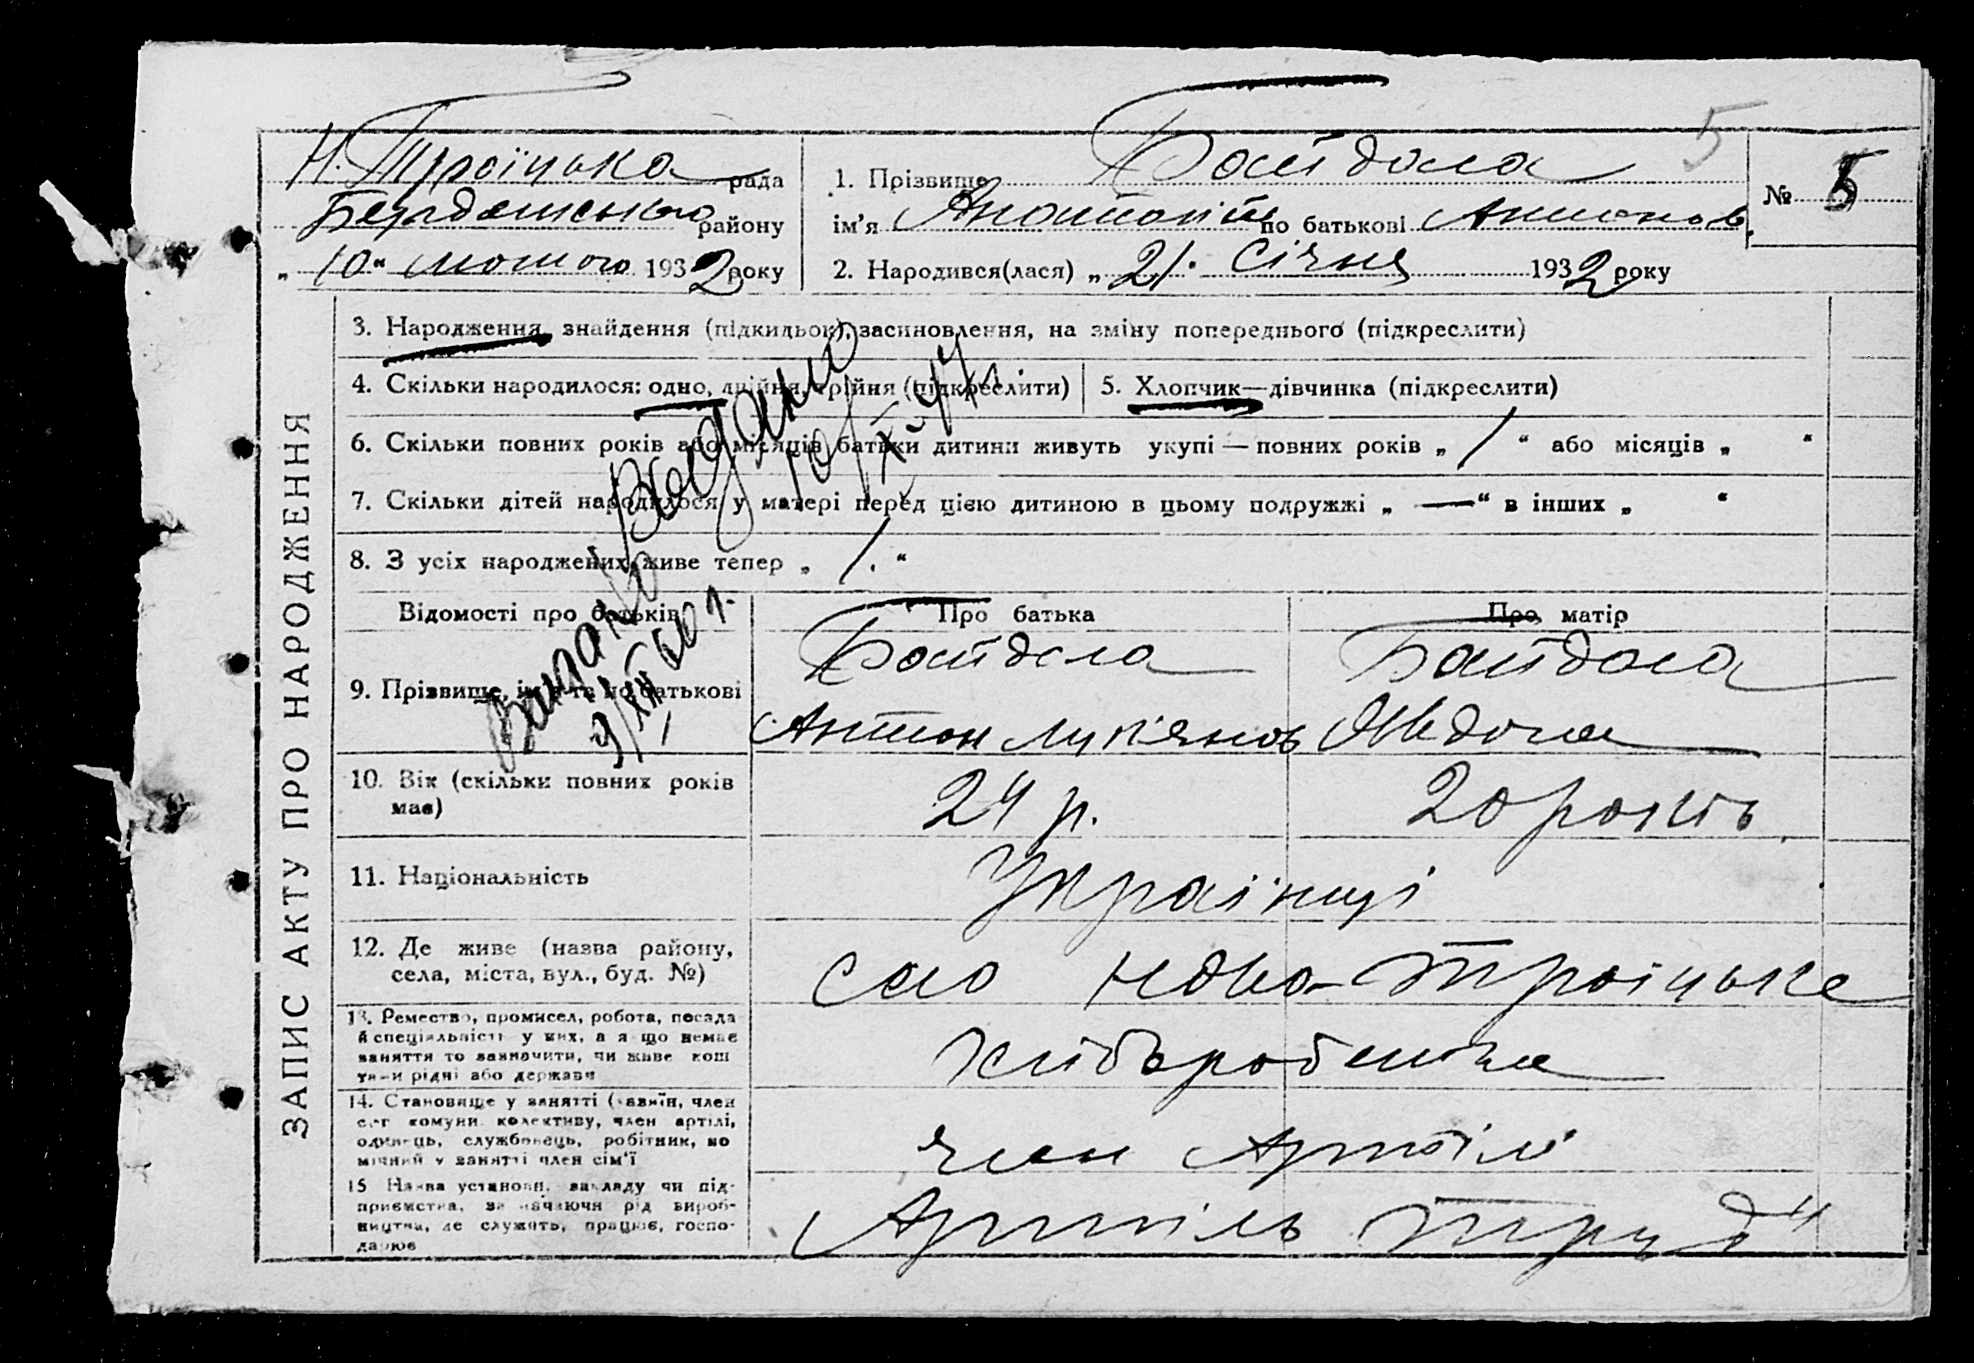 5
Н. Троїцька рада
Бердянського району
„ 10 “ лютого 1932 року
1. Прізвище Байдала
ім’я Анатолій по батькові Антонов.
2. Народився(лася) „ 21. січня 1932 року
№ 5
ЗАПИС АКТУ ПРО НАРОДЖЕННЯ
3. Народження, знайдення (підкидьок), засиновлення, на зміну попереднього (підкреслити)
4. Скільки народилося: одно, двійня, трійня (підкреслити)
5. Хлопчик—дівчинка (підкреслити)
6. Скільки повних років або місяців батьки дитини живуть укупі — повних років „ 1 “ або місяців „ “
7. Скільки дітей народилося у матері перед цією дитиною в цьому подружжі „ — “ в інших „ “
8. З усіх народжених живе тепер „ 1. “
Відомості про батьків
Про батька
Про матір
9. Прізвище, ім’я та по батькові
Байдала
Антон Лук’янов
Байдала
Явдоха
10. Вік (скільки повних років має)
24 р.
20 років
11. Національність
Українці
12. Де живе (назва району, села, міста, вул., буд. №)
село Ново-Троїцьке
13. Ремество, промисел, робота, посада й спеціяльність у них, а якщо немає заняття то зазначити, чи живе коштами рідні або держави
хлібороби
14. Становище у занятті (хазяїн, член с.-г. комуни, колективу, член артілі, одинець, службовець, робітник, помічний у занятті член сім’ї
член Артілі
15 Назва установи, закладу чи підприємства, зазначаючи рід виробництва, де служить, працює, господарює
Артіль Труд“
9/XII 60 г.
10/X-47 г.